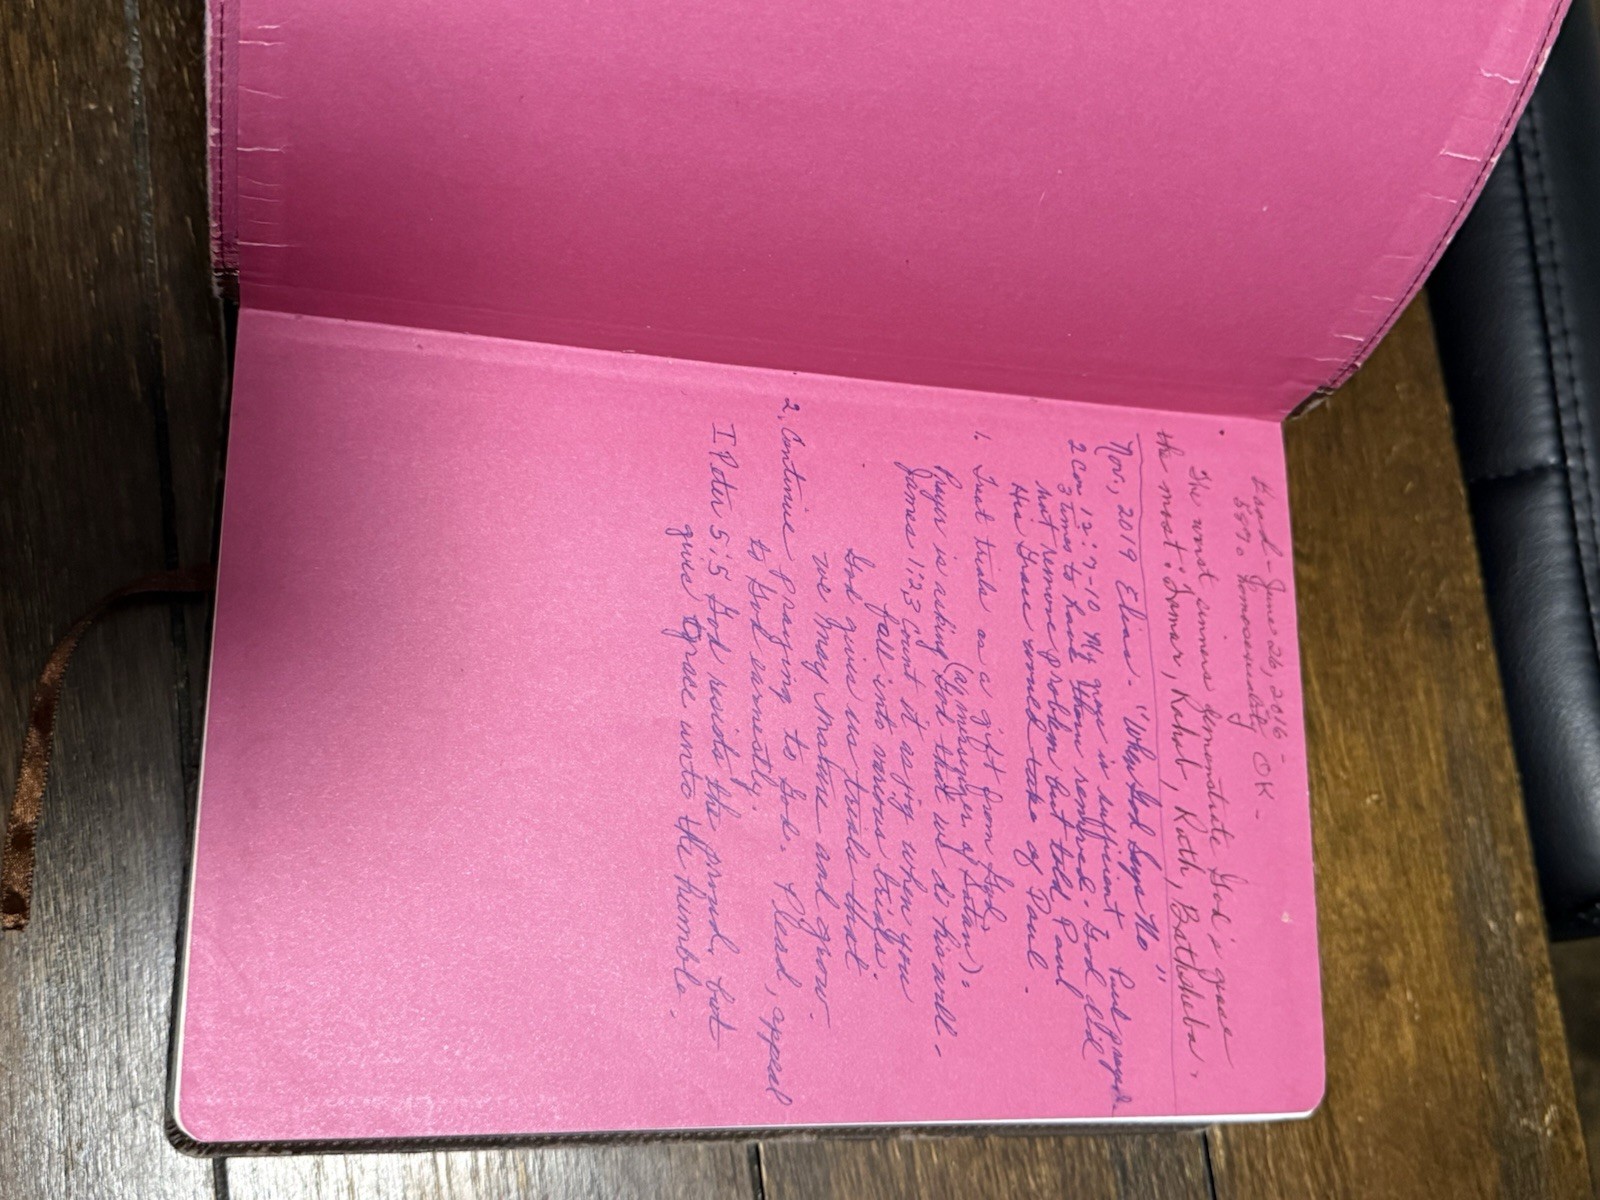 June 26, 2016 -
58% homosexuality OK -
The worst sinners demonstrate God's grace
the most: Tamar, Rahab, Ruth, Bathsheba.
Nov., 2019 Elias - "When God Says No"
2 Cor 12:7-10 My grace is sufficient Paul prayed
3 times to have them removed. God did
not remove problem but told Paul
His Grace would take of Paul.
1. Trust trials as a gift from God,
(a messenger of Satan).
Prayer is asking God that we do his will.
James 1:2,3 Count it as joy when you
fall into various trials.
God gives us trials that
we may mature and grow.
2. Continue praying to God. Plead, appeal
to God earnestly.
I Peter 5:5 God resists the proud, but
gives grace unto the humble.